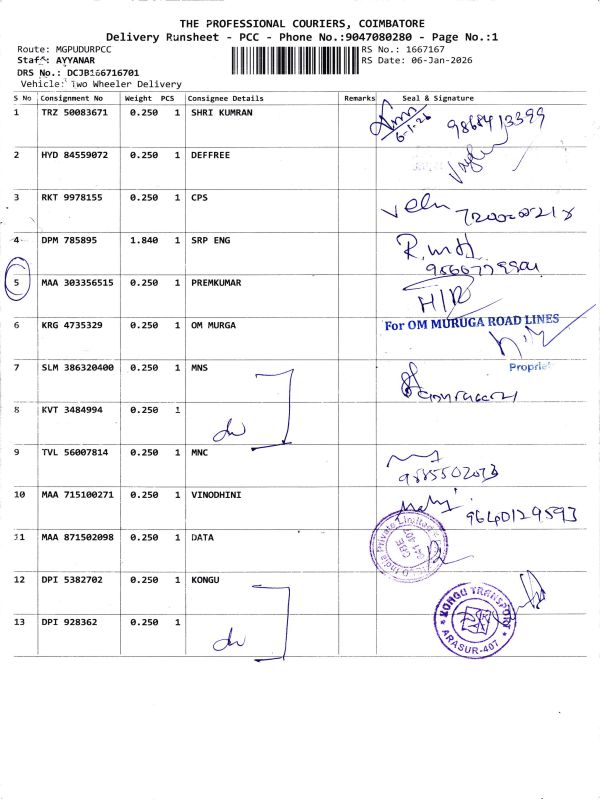 THE PROFESSIONAL COURIERS, COIMBATORE
Delivery Runsheet - PCC - Phone No.:9047080280 - Page No.:1
Route: MGPUDURPCC RS No.: 1667167
Staff: AYYANAR RS Date: 06-Jan-2026
DRS No.: DCJB166716701
Vehicle: Two Wheeler Delivery
S No Consignment No Weight PCS Consignee Details Remarks Seal & Signature
1 TRZ 50083671 0.250 1 SHRI KUMRAN
6-1-26 9868413399
2 HYD 84559072 0.250 1 DEFFREE
3 RKT 9978155 0.250 1 CPS
Velu
4 DPM 785895 1.840 1 SRP ENG
5 MAA 303356515 0.250 1 PREMKUMAR
H/R
6 KRG 4735329 0.250 1 OM MURGA
For OM MURUGA ROAD LINES
7 SLM 386320400 0.250 1 MNS
8 KVT 3484994 0.250 1
9 TVL 56007814 0.250 1 MNC
9885502073
10 MAA 715100271 0.250 1 VINODHINI
9640129593
11 MAA 871502098 0.250 1 DATA
India Private Limited
12 DPI 5382702 0.250 1 KONGU
13 DPI 928362 0.250 1
KONGU TRANSPORT
ARASUR-407